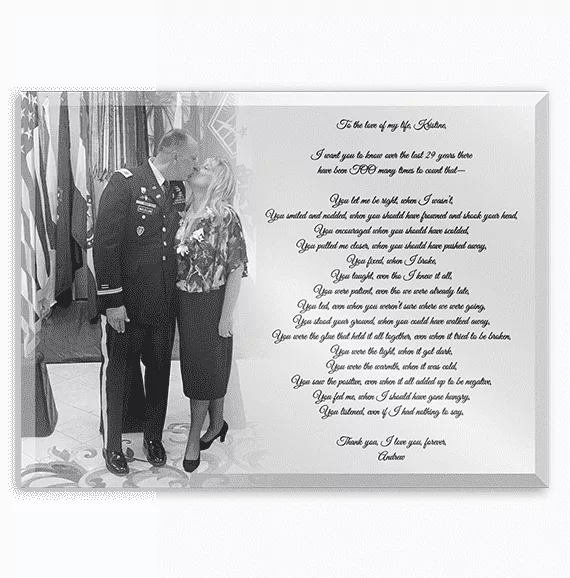 To the love of my life, Kristine,
I want you to know over the last 29 years there
have been TOO many times to count that—
You let me be right, when I wasn't,
You smiled and nodded, when you should have frowned and shook your head,
You encouraged when you should have scolded,
You pulled me closer, when you should have pushed away,
You fixed, when I broke,
You laught, even tho I knew it all,
You were patient, even tho we were already late,
You led, even when you weren't sure where we were going,
You stood your ground, when you could have walked away,
You were the glue that held it all together, even when it tried to be broken,
You were the light, when it got dark,
You were the warmth, when it was cold,
You saw the positive, even when it all added up to be negative,
You fed me, when I should have gone hungry,
You listened, even if I had nothing to say,
Thank you, I love you, forever,
Andrew